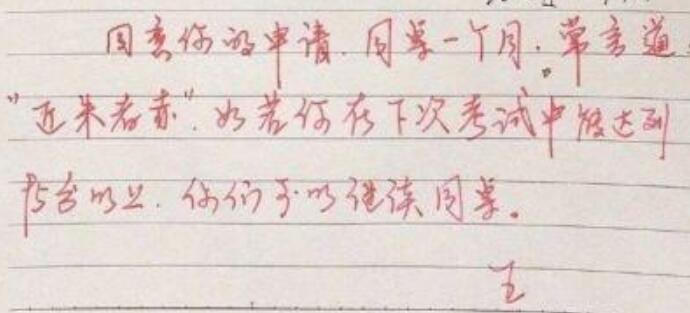 同意你的申请.同桌一个月.常言道
"近朱者赤".如若你在下次考试中能达到
75分以上.你们可以继续同桌。
王